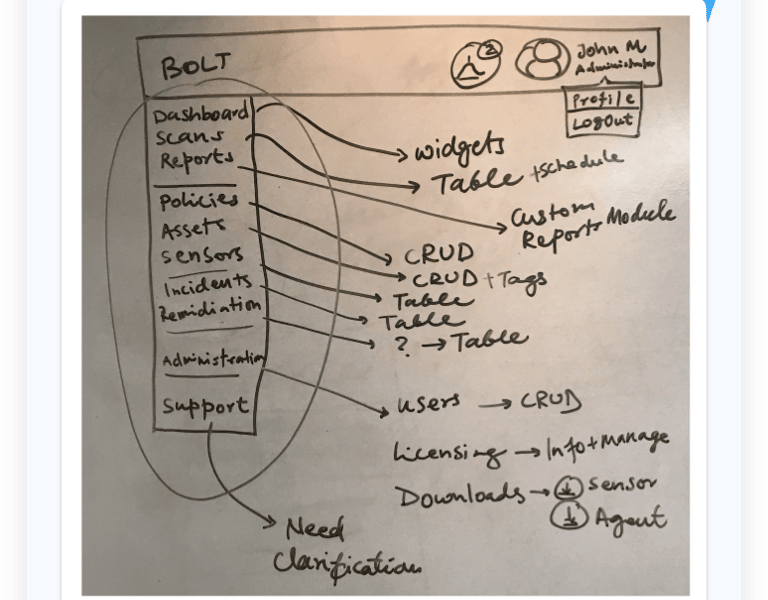 BOLT
2
John M
Administrator
Profile
Logout
Dashboard
Scans
Reports
Policies
Assets
Sensors
Incidents
Remidiation
Administration
Support
widgets
Table + schedule
Custom
Reports Module
CRUD
CRUD + Tags
Table
Table
? → Table
users → CRUD
Licensing → Info + Manage
Downloads → Sensor
Agent
Need
Clarification